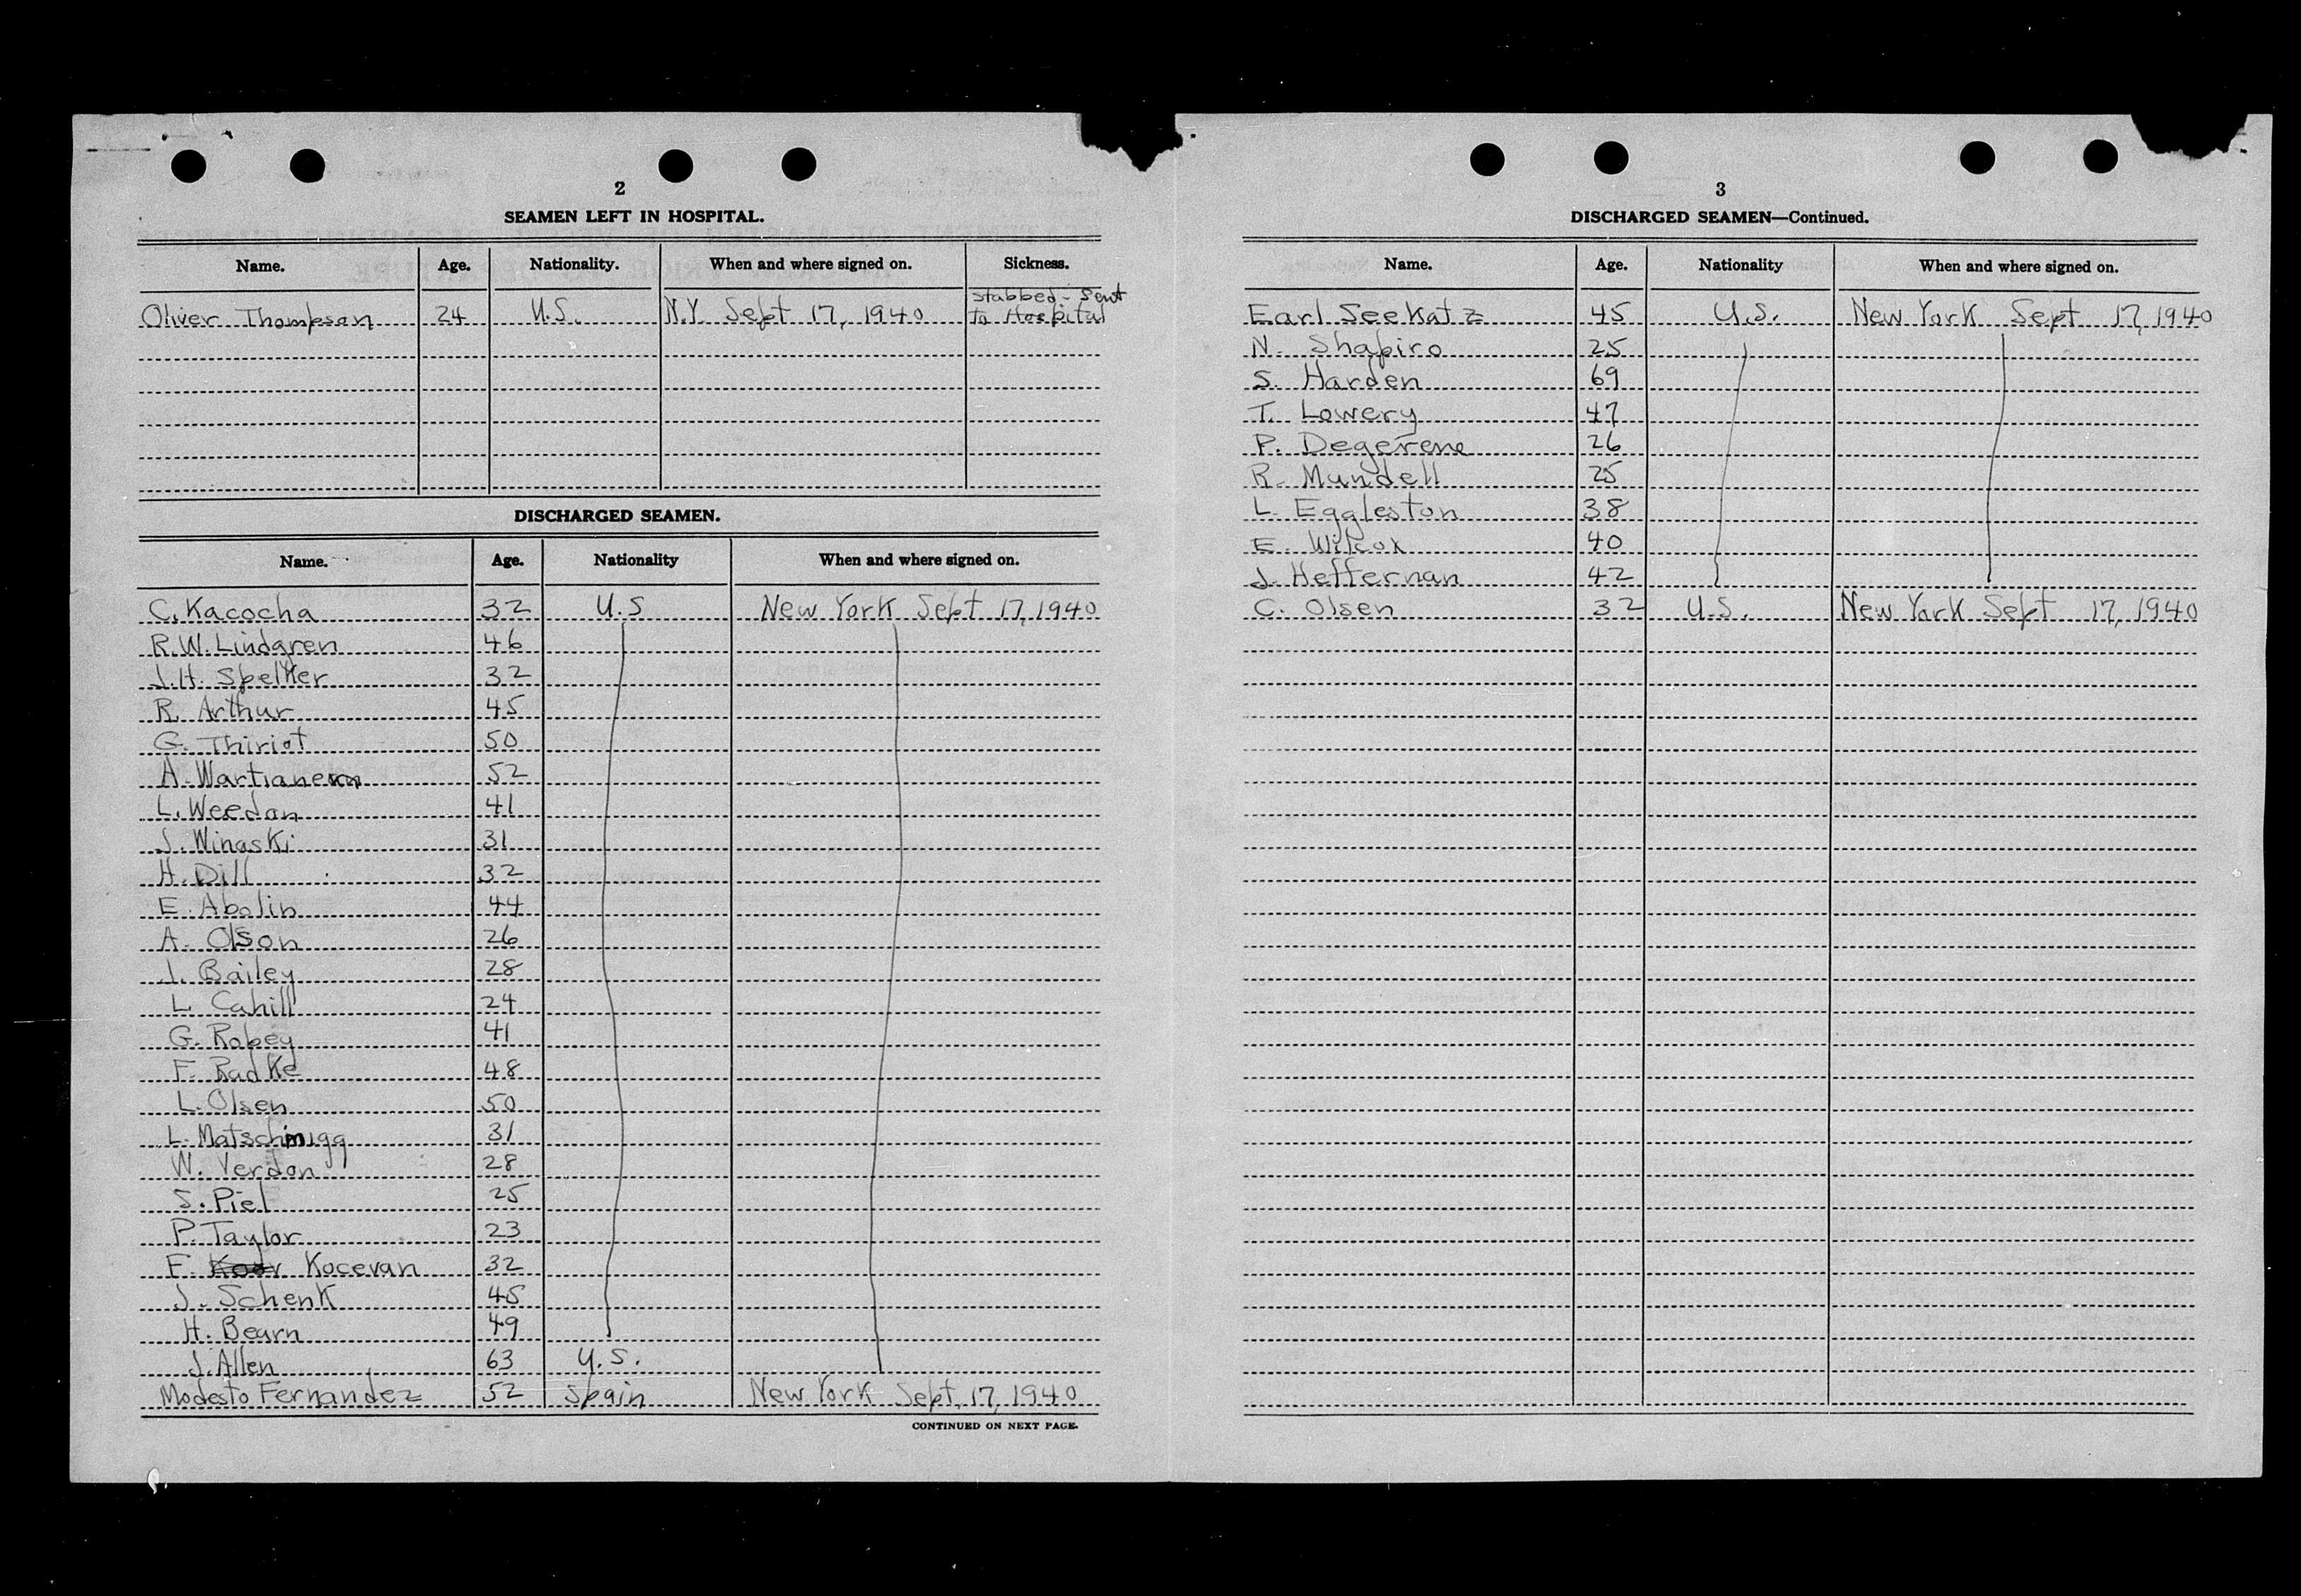 2
SEAMEN LEFT IN HOSPITAL.
Name. Age. Nationality. When and where signed on. Sickness.
Oliver Thompson 24 U.S. N.Y. Sept 17, 1940 stabbed - Sent to Hospital
DISCHARGED SEAMEN.
Name. Age. Nationality When and where signed on.
C. Kacocha 32 U.S New York Sept 17, 1940
R.W. Lindgren 46
J.H. Spelker 32
R. Arthur 45
G. Thiriot 50
A. 52
L. Weedon 41
J. Winaski 31
H. Dill 32
E. Abolin 44
A. Olson 26
J. Bailey 28
L. Cahill 24
G. Robey 41
F. Radke 48
L. Olsen 50
L. Matschinigg 31
W. Verdon 28
S. Piel 25
P. Taylor 23
F. Kocevan 32
J. Schenk 45
H. Bearn 49
J. Allen 63 U.S.
Modesto Fernandez 52 Spain New York Sept, 17, 1940
CONTINUED ON NEXT PAGE.
3
DISCHARGED SEAMEN—Continued.
Name. Age. Nationality When and where signed on.
Earl Seekatz 45 U.S. New York Sept 17, 1940
N. Shapiro 25
S. Harden 69
T. Lowery 47
P. Degerene 26
R. Mundell 25
L. Eggleston 38
E. Wilcox 40
J. Heffernan 42
C. Olsen 32 U.S. New York Sept 17, 1940